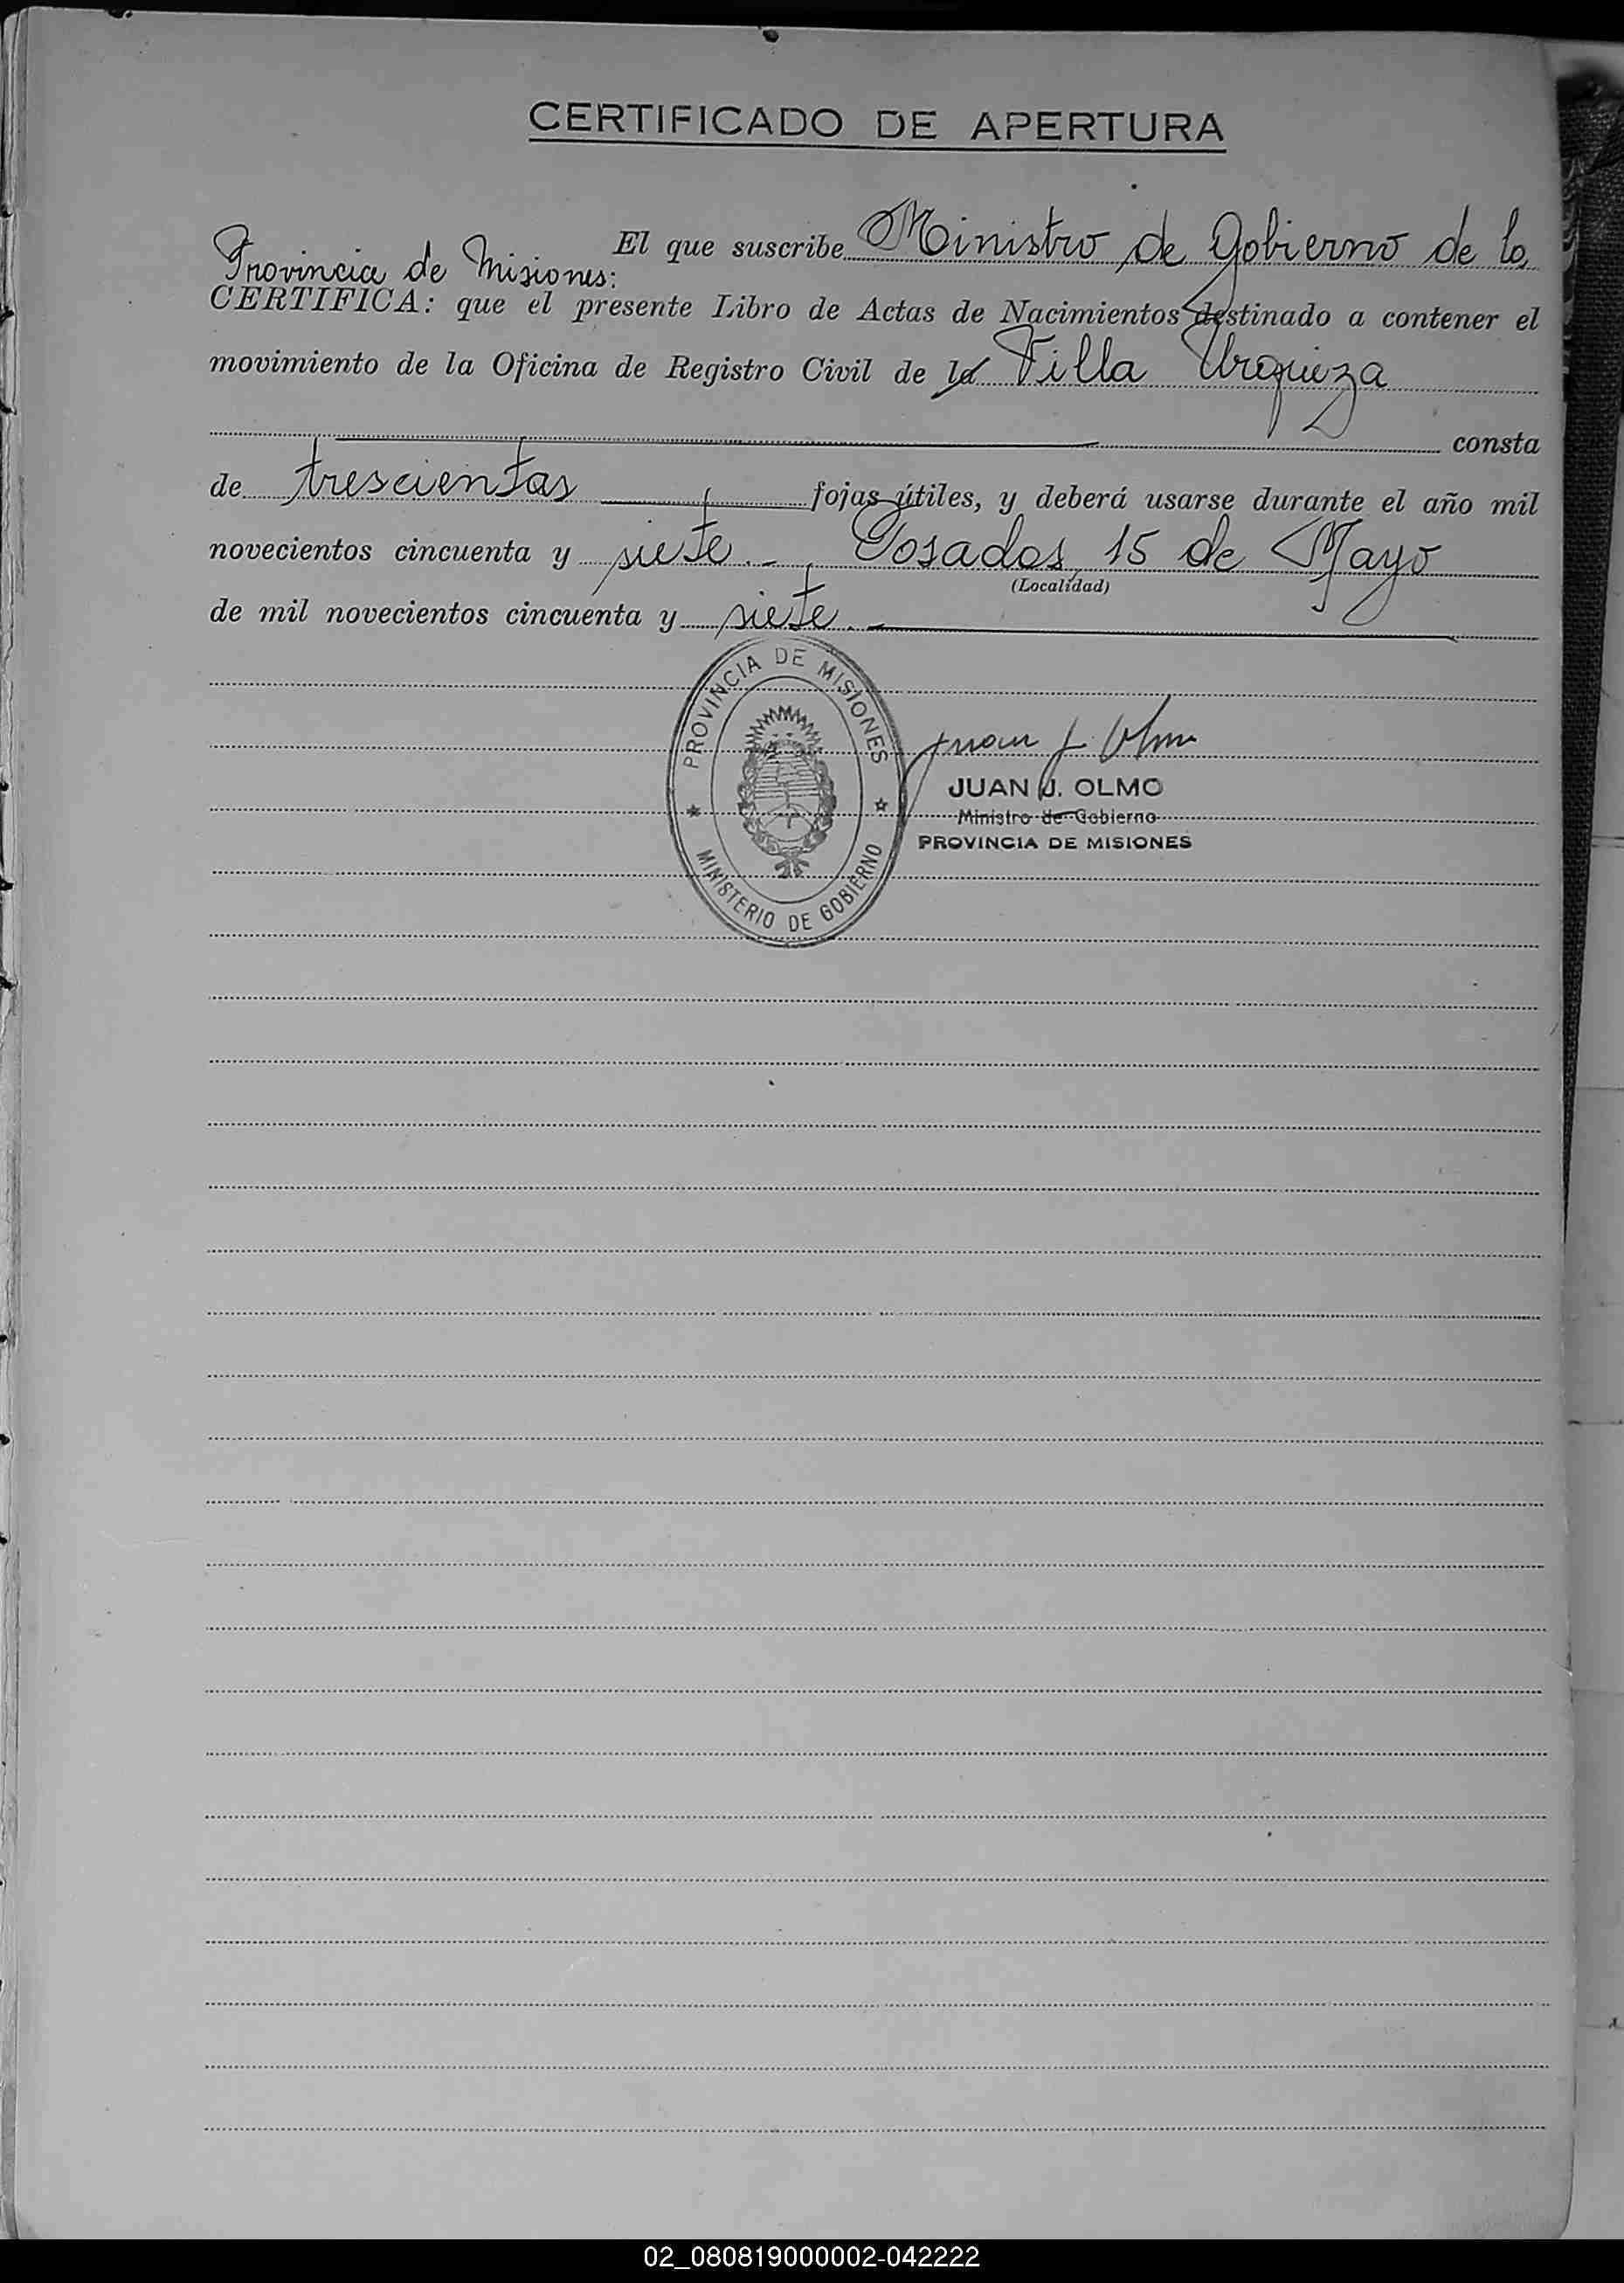 CERTIFICADO DE APERTURA
El que suscribe Ministro de Gobierno de la
Provincia de Misiones:
CERTIFICA: que el presente Libro de Actas de Nacimientos destinado a contener el
movimiento de la Oficina de Registro Civil de la Villa Urquiza
consta
de trescientas fojas útiles, y deberá usarse durante el año mil
novecientos cincuenta y siete.- Posadas, 15 de Mayo
(Localidad)
de mil novecientos cincuenta y siete.-
PROVINCIA DE MISIONES
MINISTERIO DE GOBIERNO
Juan J. Olmo
JUAN J. OLMO
Ministro de Gobierno
PROVINCIA DE MISIONES
02_080819000002-042222